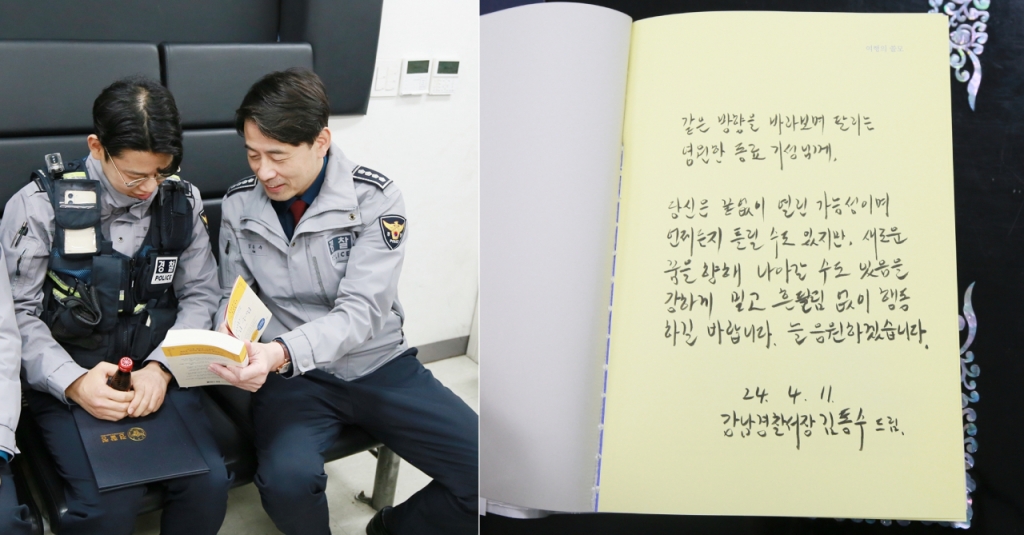 경찰
POLICE
경찰
같은 방향을 바라보며 달리는
영원한 동료 기성님께.
당신은 끝없이 열린 가능성이며
언제든지 틀릴 수도 있지만, 새로운
꿈을 향해 나아갈 수도 있음을
강하게 믿고 흔들림 없이 행동
하길 바랍니다. 늘 응원하겠습니다.
24. 4. 11.
강남경찰서장 김동수 드림.